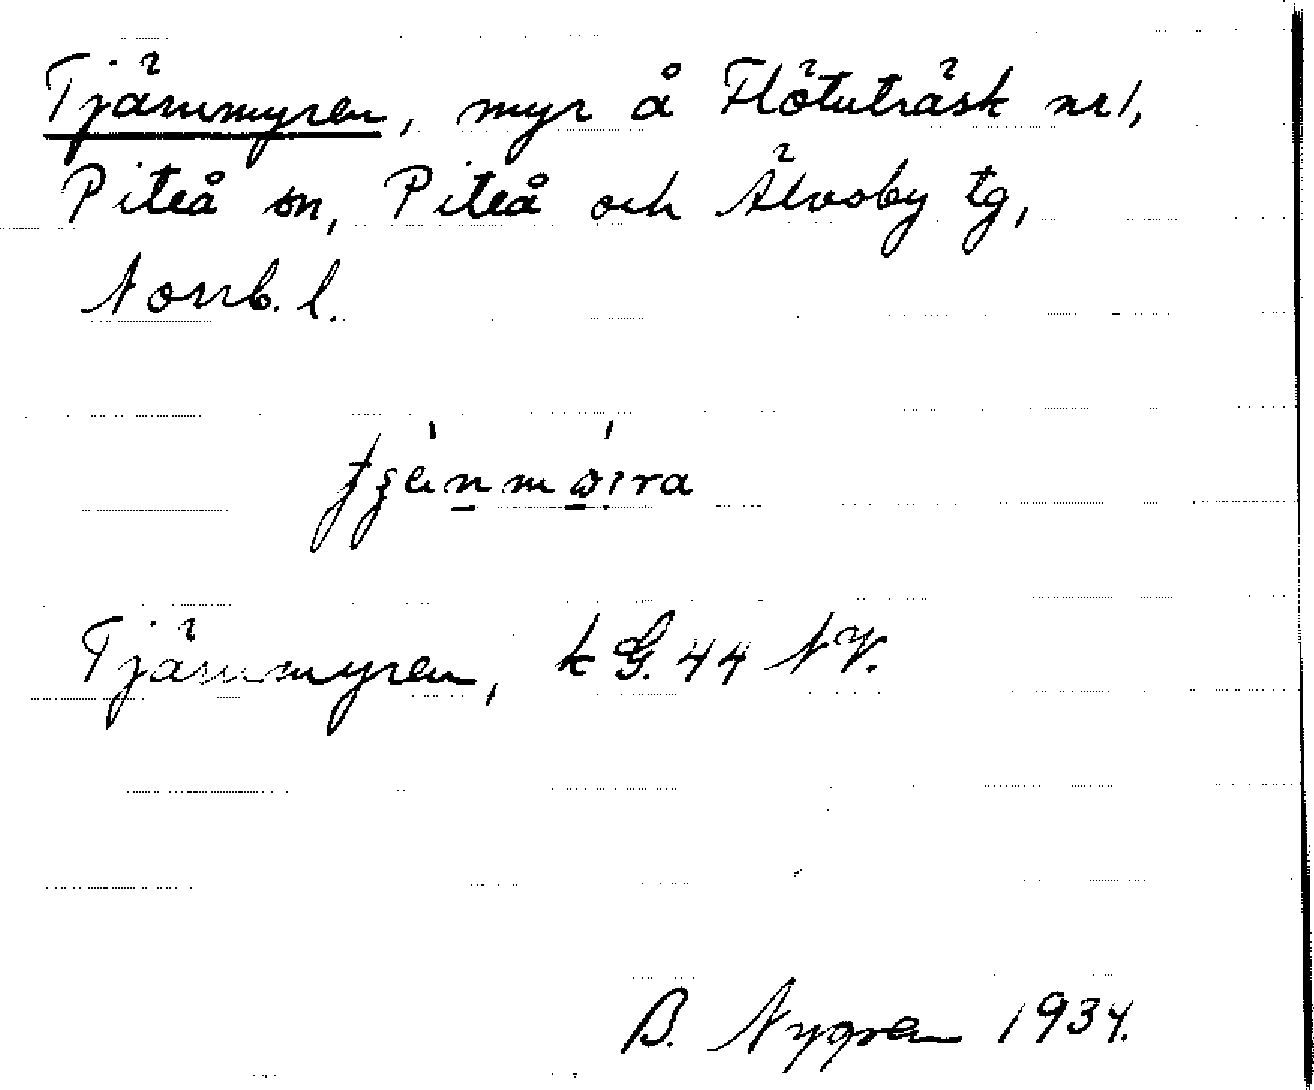 Tjärnmyren, myr å Flötuträsk nr 1,
Piteå sn, Piteå och Älvsby tg,
Norrb. l.
Tjärnmyren, k G. 44 NV.
B. Nygren 1934.